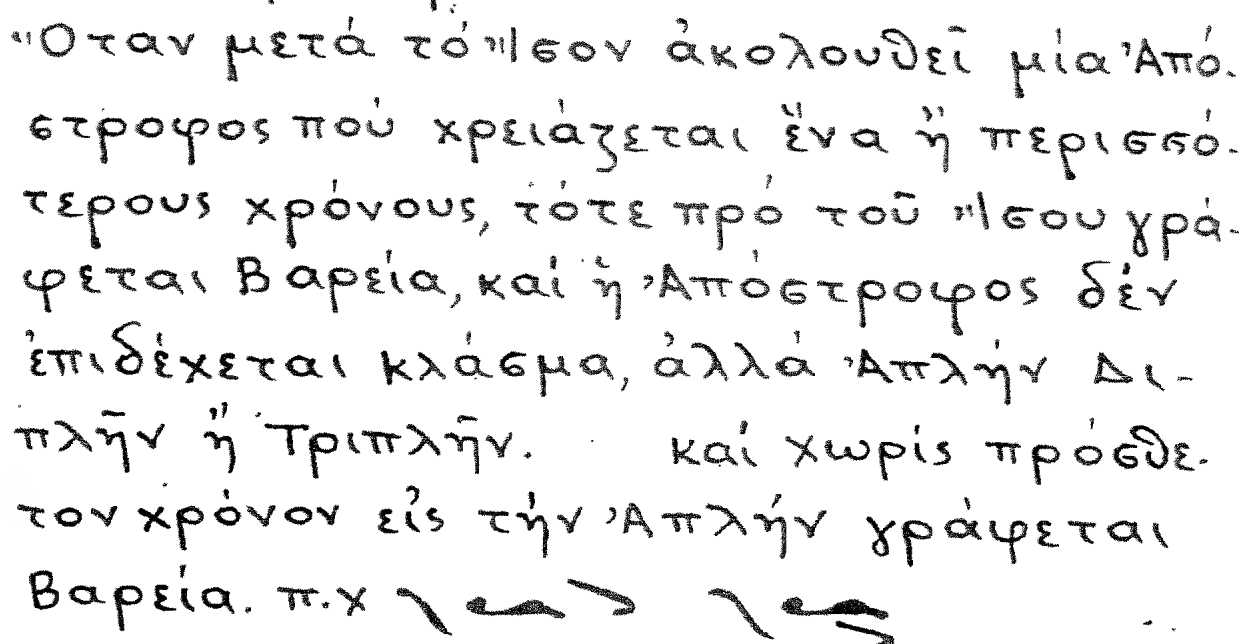 Ὅταν μετά τό Ἴσον ἀκολουθεῖ μία Ἀπό-
στροφος πού χρειάζεται ἕνα ἤ περισσό-
τερους χρόνους, τότε πρό τοῦ Ἴσου γρά-
φεται Βαρεία, καί ἡ Ἀπόστροφος δέν
ἐπιδέχεται κλάσμα, ἀλλά Ἁπλήν Δι-
πλῆν ἤ Τριπλῆν. καί χωρίς πρόσθε-
τον χρόνον εἰς τήν Ἁπλήν γράφεται
Βαρεία. π.χ